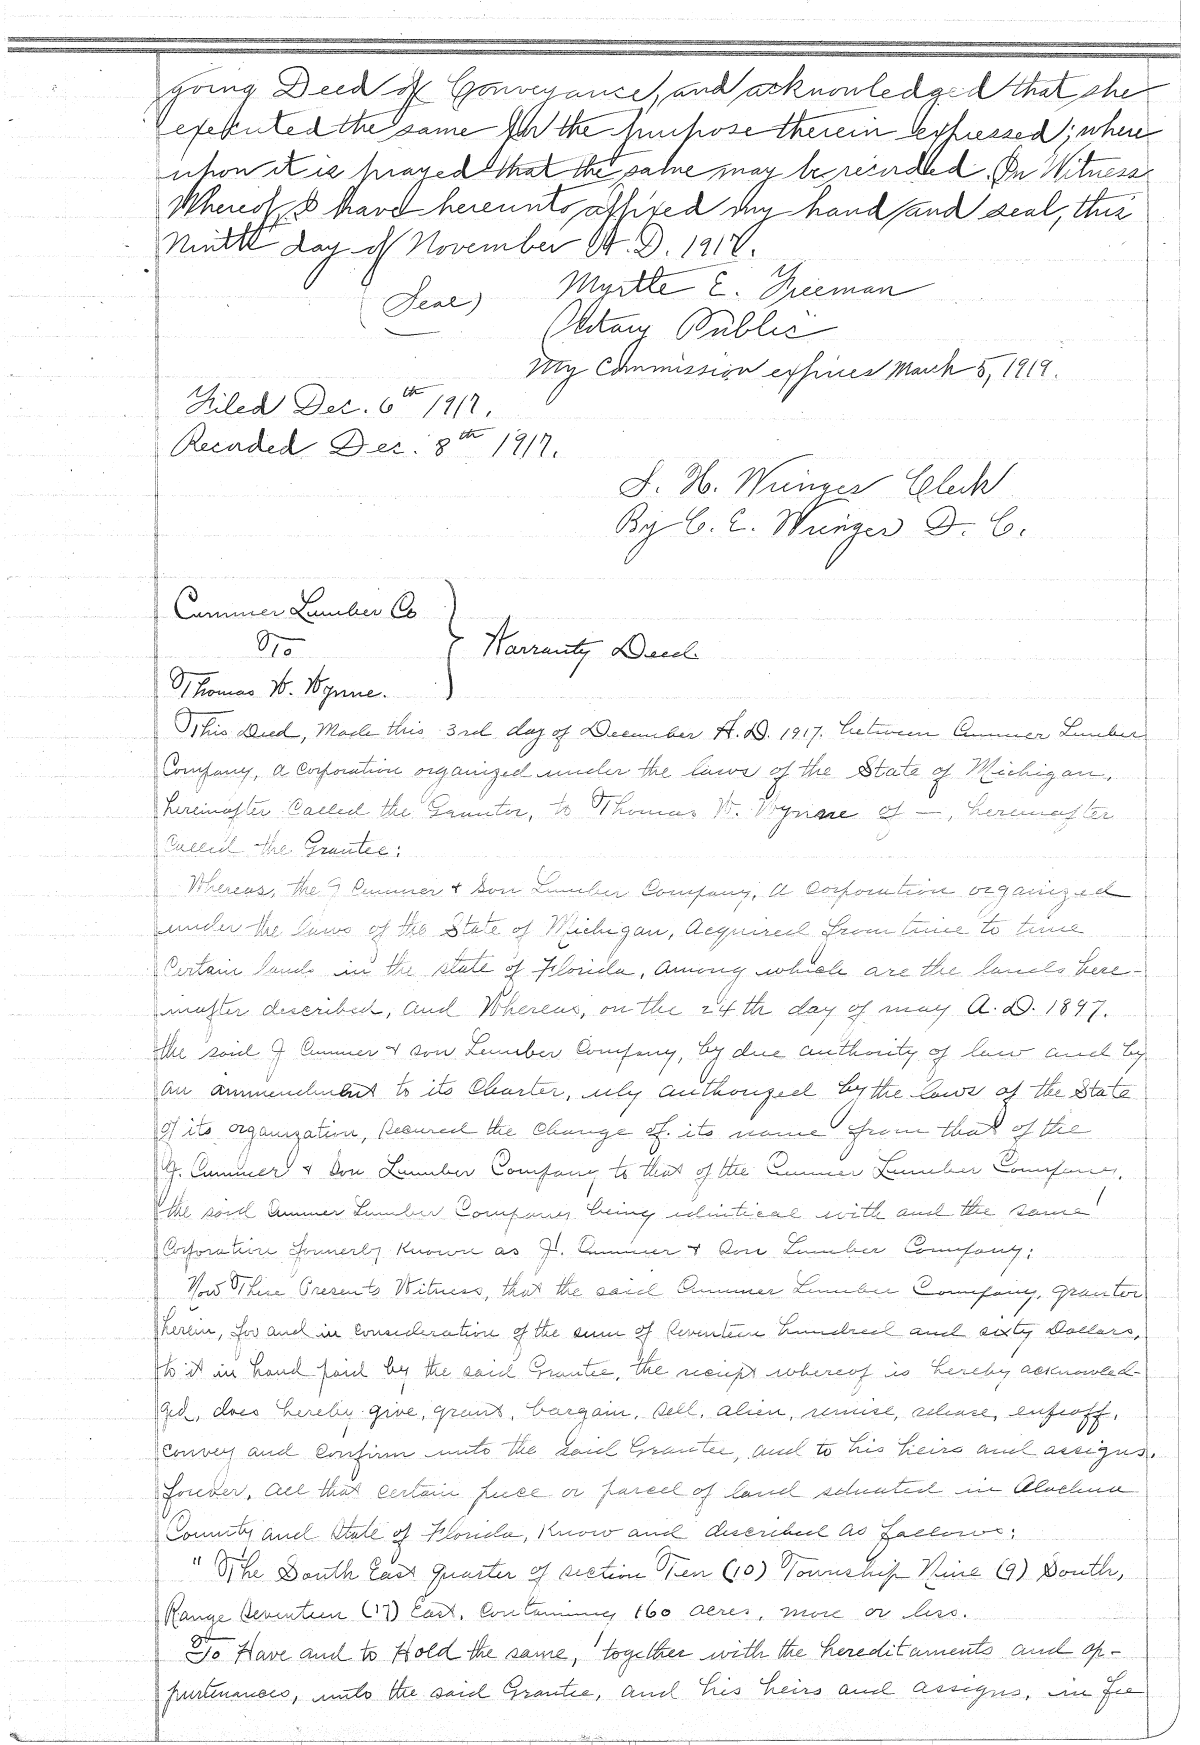 going Deed of Conveyance, and acknowledged that she
executed the same for the purpose therein expressed; where
upon it is prayed that the same may be recorded. In Witness
Whereof, I have hereunto affixed my hand and seal, this
Ninth day of November A. D. 1917.
(Seal) Myrtle E. Freeman
Notary Public
My Commission expires March 5, 1919.
Filed Dec. 6th 1917.
Recorded Dec. 8th 1917.
S. H. Wienges Clerk
By C. E. Wienges D. C.
Cummer Lumber Co
To Warranty Deed.
Thomas W. Wynne.
This Deed, Made this 3rd day of December A. D. 1917. between Cummer Lumber
Company, a corporation organized under the laws of the State of Michigan,
hereinafter called the Grantor, to Thomas W. Wynne of —, hereinafter
called the Grantee:
Whereas, the J Cummer & Son Lumber Company, a corporation organized
under the laws of the State of Michigan, acquired from time to time
certain lands in the state of Florida, among which are the lands here-
inafter described, and Whereas, on the 24th day of may A. D. 1897.
the said J Cummer & son Lumber Company, by due authority of law and by
an ammendment to its Charter, uly authorized by the laws of the State
of its organization, secured the change of its name from that of the
J. Cummer & Son Lumber Company to that of the Cummer Lumber Company,
the said Cummer Lumber Company being identical with and the same
Corporation formerly Known as J. Cummer & Son Lumber Company;
Now These Presents Witness, that the said Cummer Lumber Company, grantor
herein, for and in consideration of the sum of Seventeen hundred and sixty Dollars,
to it in hand paid by the said Grantee, the receipt whereof is hereby acknowled-
ged, does hereby give, grant, bargain, sell, alien, remise, release, enfeoff,
convey and confirm unto the said Grantee, and to his heirs and assigns.
forever, all that certain piece or parcel of land situated in Alachua
County and State of Florida, Know and described as follows:
" The South East quarter of section Ten (10) Township Nine (9) South,
Range Seventeen (17) East, containing 160 acres, more or less.
To Have and to Hold the same, together with the hereditaments and ap-
purtenances, unto the said Grantee, and his heirs and assigns, in fee